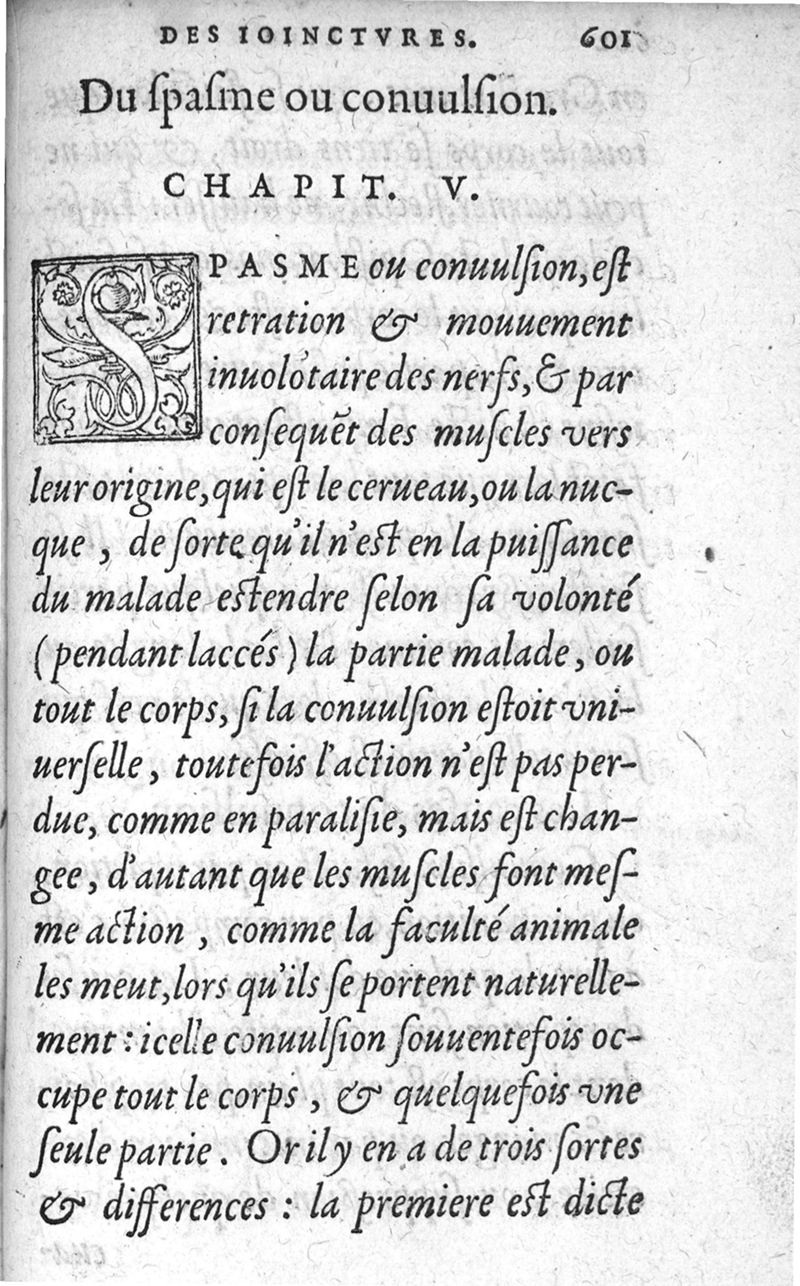 DES IOINCTVRES. 601
Du ſpaſme ou conuulſion.
CHAPIT. V.
SPASME ou conuulſion, eſt
retration & mouuement
inuolõtaire des nerfs, & par
conſequẽt des muſcles vers
leur origine, qui eſt le cerueau, ou la nuc-
que , de ſorte qu'il n'eſt en la puiſſance
du malade eſtendre ſelon ſa volonté
(pendant laccés) la partie malade, ou
tout le corps, ſi la conuulſion eſtoit vni-
uerſelle, toutefois l'action n'eſt pas per-
due, comme en paraliſie, mais eſt chan-
gee, d'autant que les muſcles font meſ-
me action , comme la faculté animale
les meut, lors qu'ils ſe portent naturelle-
ment : icelle conuulſion ſouuentefois oc-
cupe tout le corps , & quelquefois vne
ſeule partie. Or il y en a de trois ſortes
& differences : la premiere eſt dicte